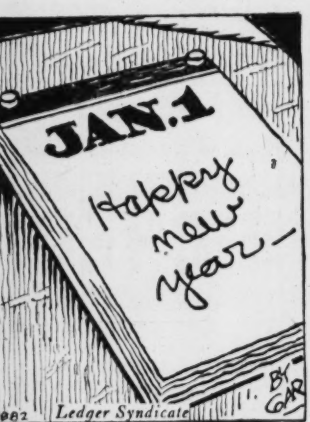 JAN. 1
Happy
new
year—
BY
GAR
882 Ledger Syndicate